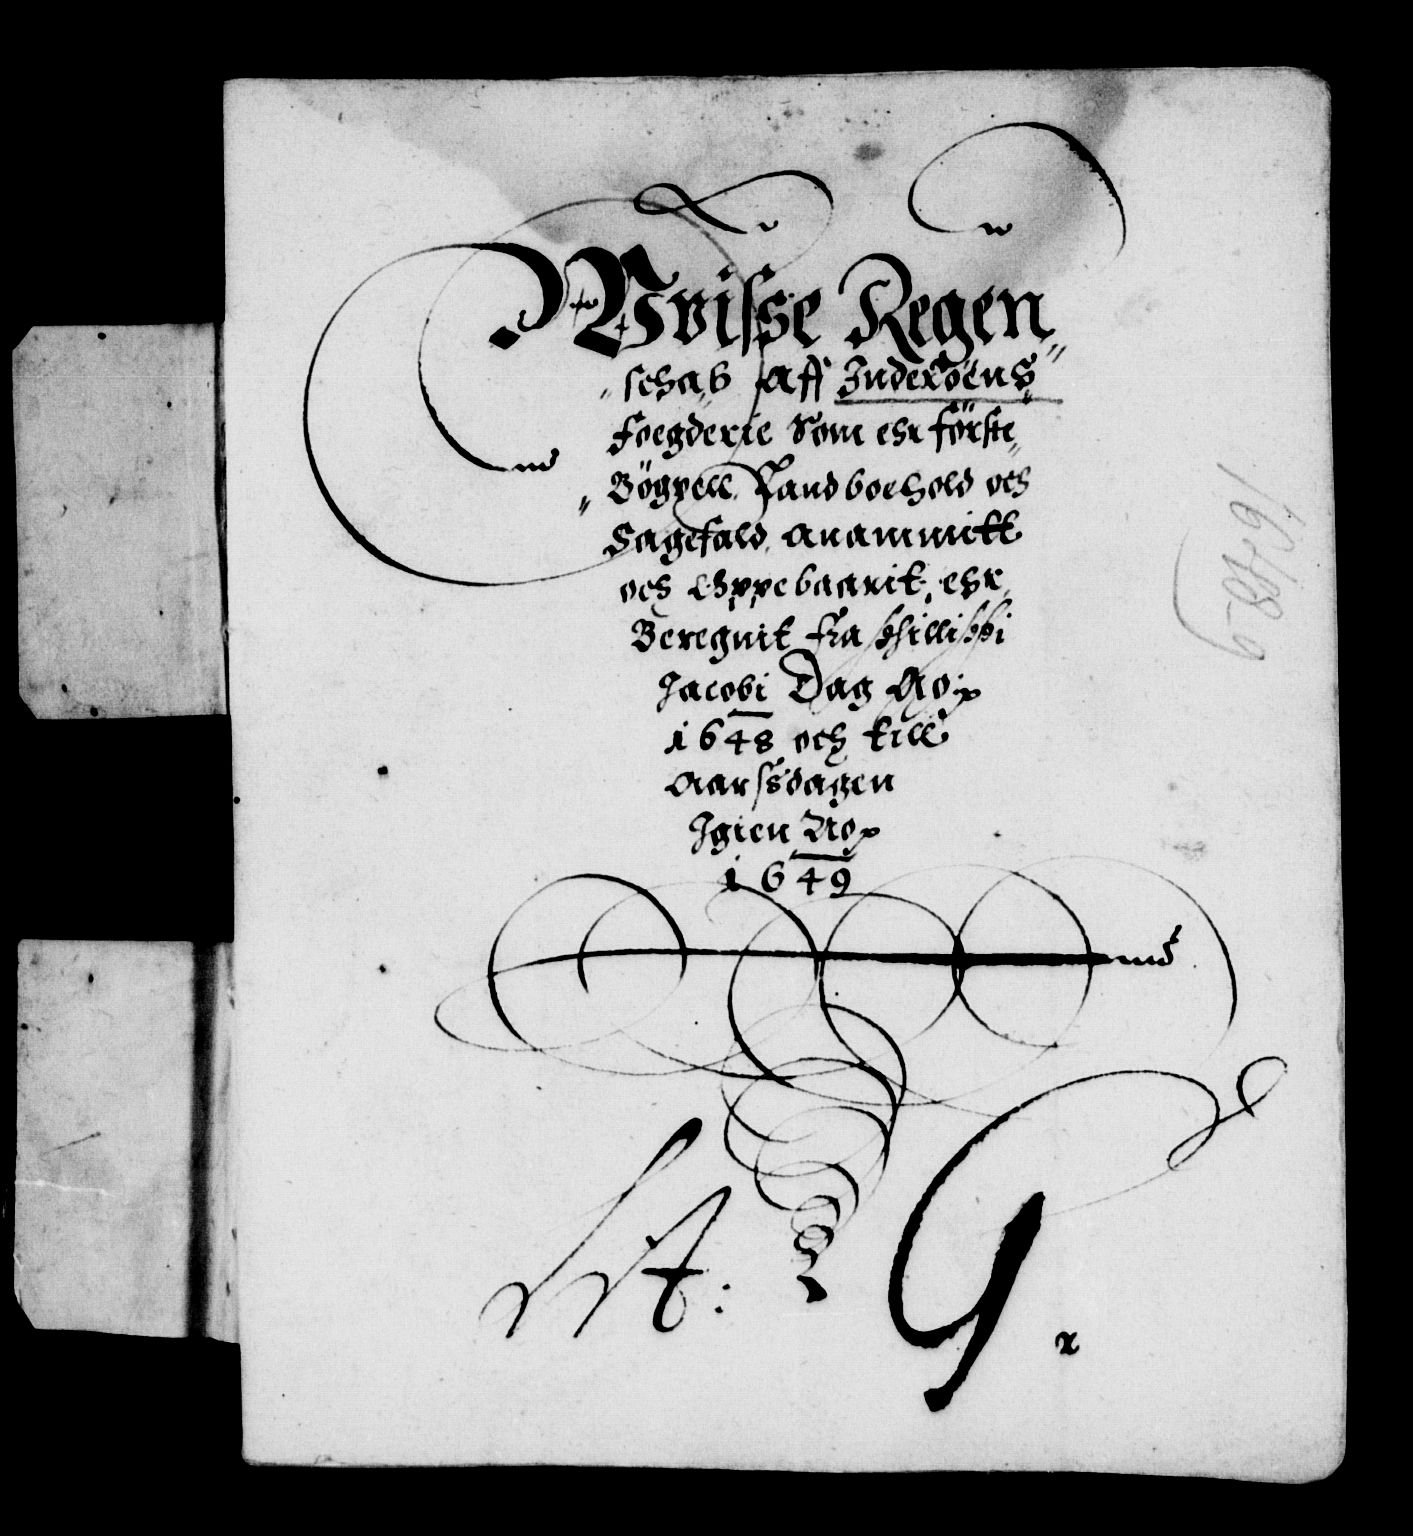 Wvisse Regen„
„schab aff Inderöens
Foegderie Som ehr förste„
„Bögxell, Landboehold och
Sagefald, anammitt
och Oppebaarit, ehr
Beregnit fra Philippi
Jacobi Dag Ao
1648 och till
Aarssdagen
Igien Ao
1649
Lit: G
1648-9